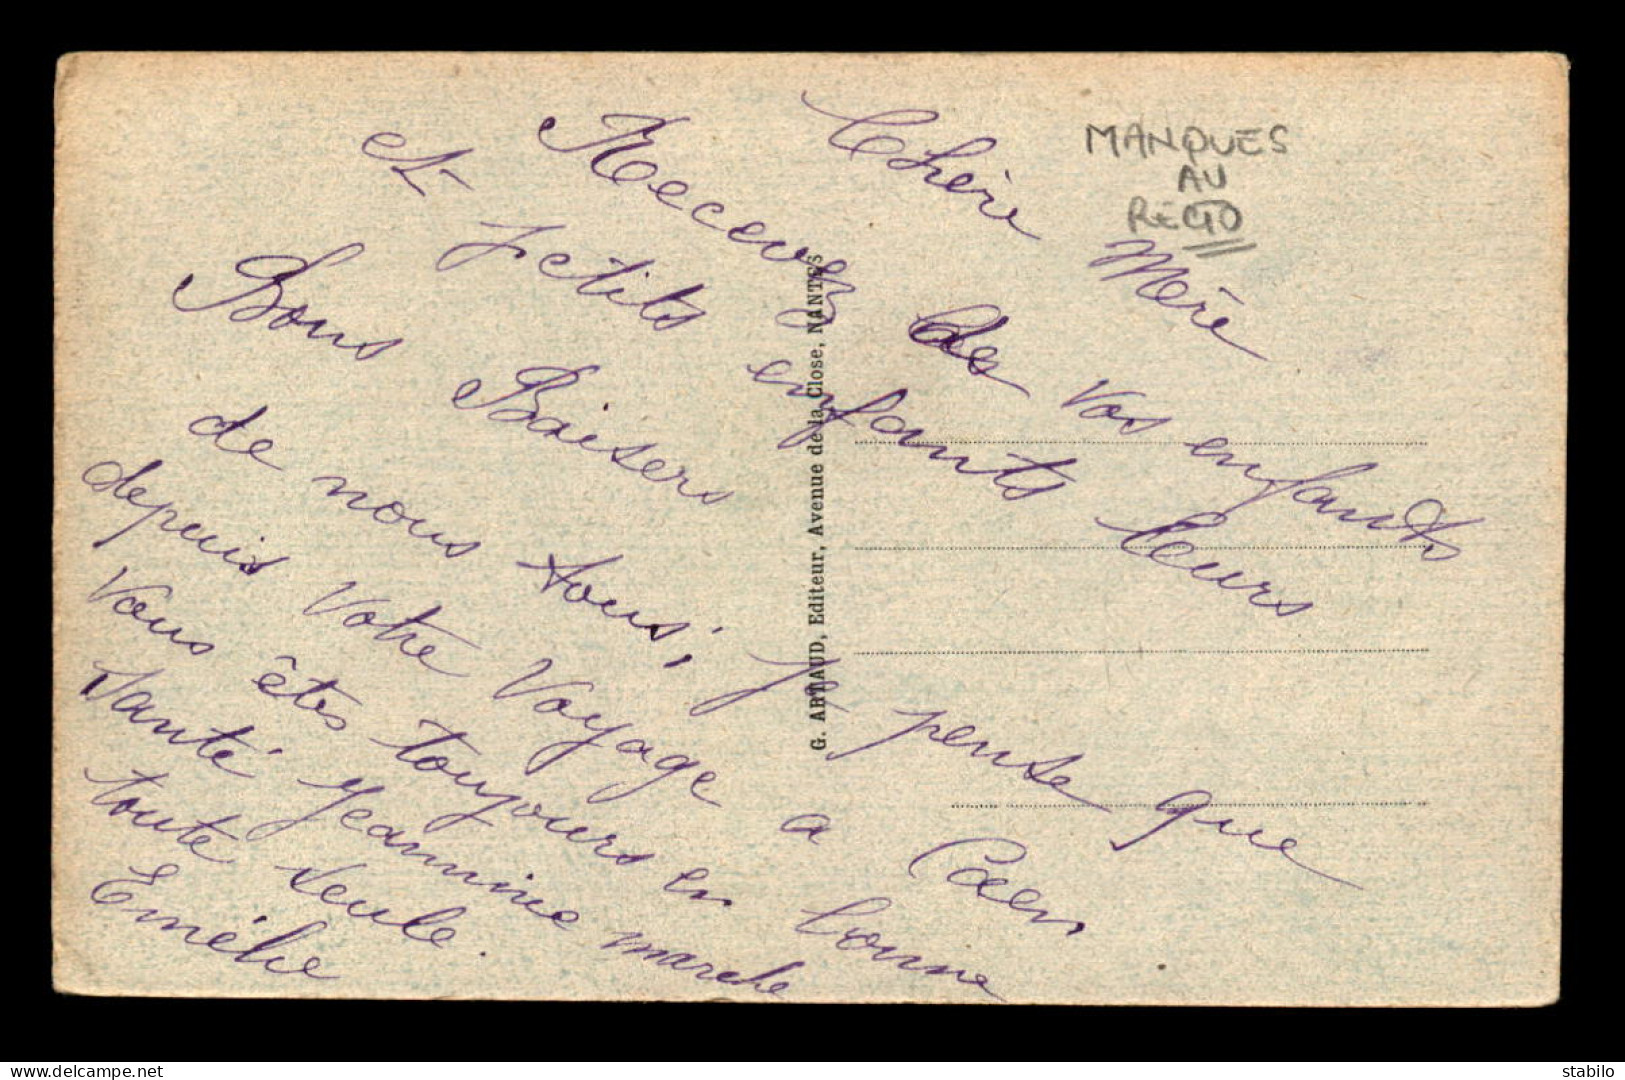 Chère Mère
Recevez des vos enfants
et petits enfants leurs
Bons Baisers
de nous tous; Je pense que
depuis votre voyage a Caen
vous êtes toujours en bonne
santé Jeannine marche
toute seule.
Emélie
MANQUES
AU
RECTO
G. ARTAUD, Editeur, Avenue de la Close, NANTES
delcampe.net
stabilo